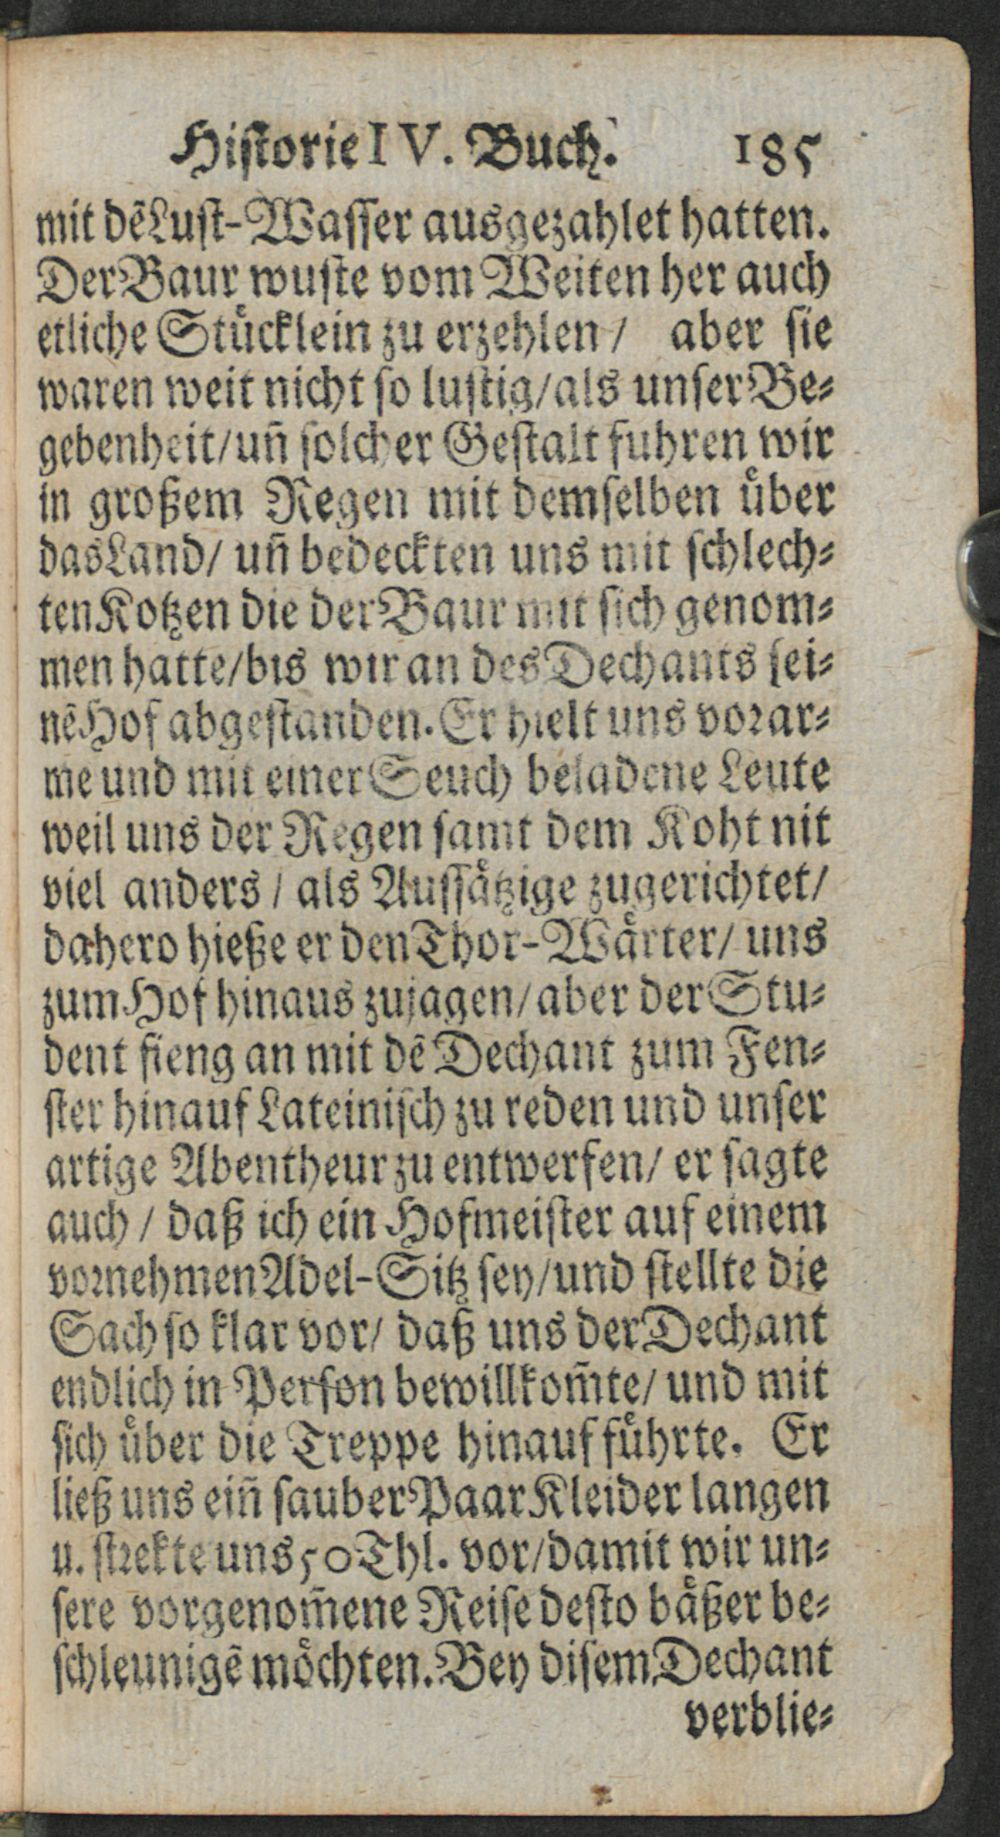 Hiſtorie IV. Buch. 185
mit dẽ Luſt-Waſſer ausgezahlet hatten.
Der Baur wuſte vom Weiten her auch
etliche Stuͤcklein zu erzehlen / aber ſie
waren weit nicht ſo luſtig/als unſer Be⸗
gebenheit/uñ ſolcher Geſtalt fuhren wir
in großem Regen mit demſelben uͤber
das Land/ uñ bedeckten uns mit ſchlech⸗
ten Kotzen die der Baur mit ſich genom⸗
men hatte/bis wir an des Dechants ſei⸗
nẽ Hof abgeſtanden. Er hielt uns vor ar⸗
me und mit einer Seuch beladene Leute
weil uns der Regen ſamt dem Koht nit
viel anders / als Auſſaͤtzige zugerichtet/
dahero hieße er den Thor-Waͤrter/ uns
zum Hof hinaus zujagen/ aber der Stu⸗
dent fieng an mit dẽ Dechant zum Fen⸗
ſter hinauf Lateiniſch zu reden und unſer
artige Abentheur zu entwerfen/ er ſagte
auch / daß ich ein Hofmeiſter auf einem
vornehmen Adel-Sitz ſey/und ſtellte die
Sach ſo klar vor/ daß uns der Dechant
endlich in Perſon bewillkom̃te/ und mit
ſich uͤber die Treppe hinauf fuͤhrte. Er
ließ uns eiñ ſauber Paar Kleider langen
u. ſtrekte uns 50 Thl. vor/damit wir un⸗
ſere vorgenom̃ene Reiſe deſto baͤßer be⸗
ſchleunigẽ moͤchten. Bey diſem Dechant
verblie⸗